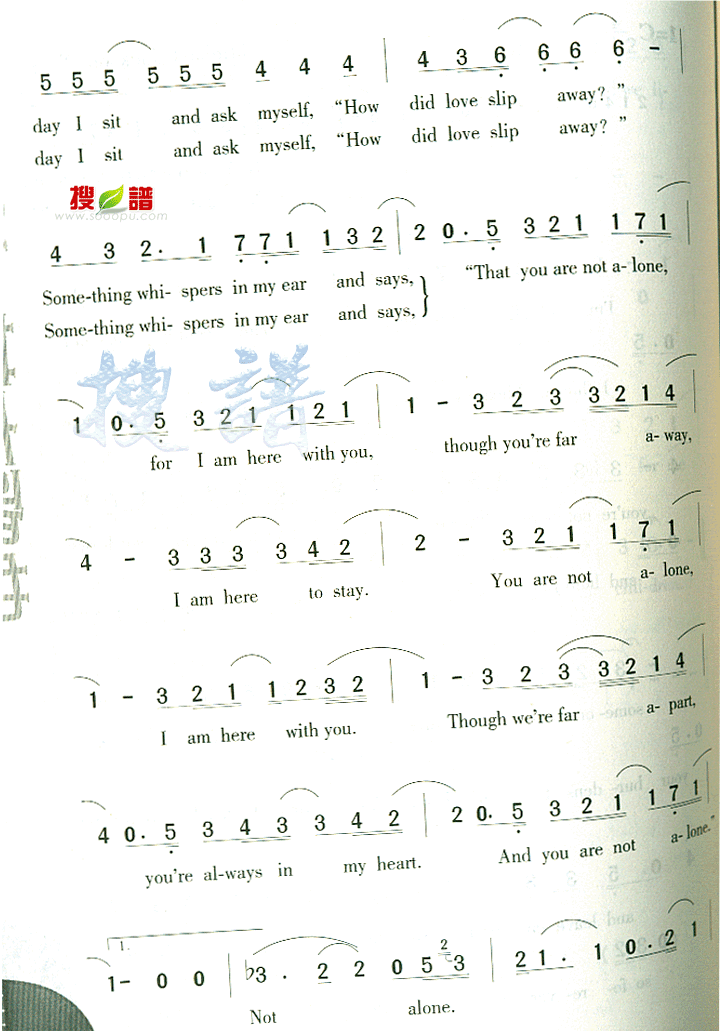 5 5 5 5 5 5 4 4 4 | 4 3 6 6 6 6 – |
day I sit and ask myself, “How did love slip away?”
day I sit and ask myself, “How did love slip away?”
搜 譜
www.sooopu.com
4 3 2· 1 7 7 1 1 3 2 | 2 0· 5 3 2 1 1 7 1 |
Some-thing whi- spers in my ear and says, “That you are not a- lone,
Some-thing whi- spers in my ear and says,
搜 譜
1 0· 5 3 2 1 1 2 1 | 1 – 3 2 3 3 2 1 4 |
for I am here with you, though you're far a- way,
4 – 3 3 3 3 4 2 | 2 – 3 2 1 1 7 1 |
I am here to stay. You are not a- lone,
1 – 3 2 1 1 2 3 2 | 1 – 3 2 3 3 2 1 4 |
I am here with you. Though we're far a- part,
4 0· 5 3 4 3 3 4 2 | 2 0· 5 3 2 1 1 7 1 |
you're al-ways in my heart. And you are not a- lone.”
1.
1 – 0 0 | ♭3· 2 2 0 5 2 3 | 2 1· 1 0· 2 1 |
Not alone.